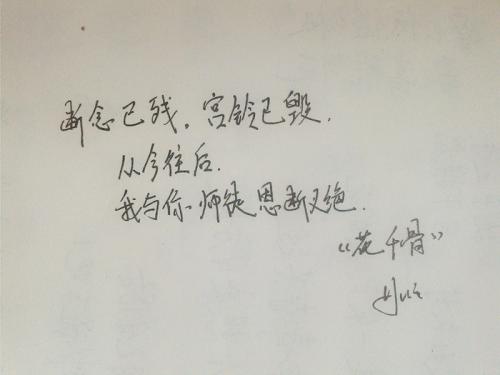 断念已残。宫铃已毁.
从今往后.
我与你师徒恩断义绝.
《花千骨》